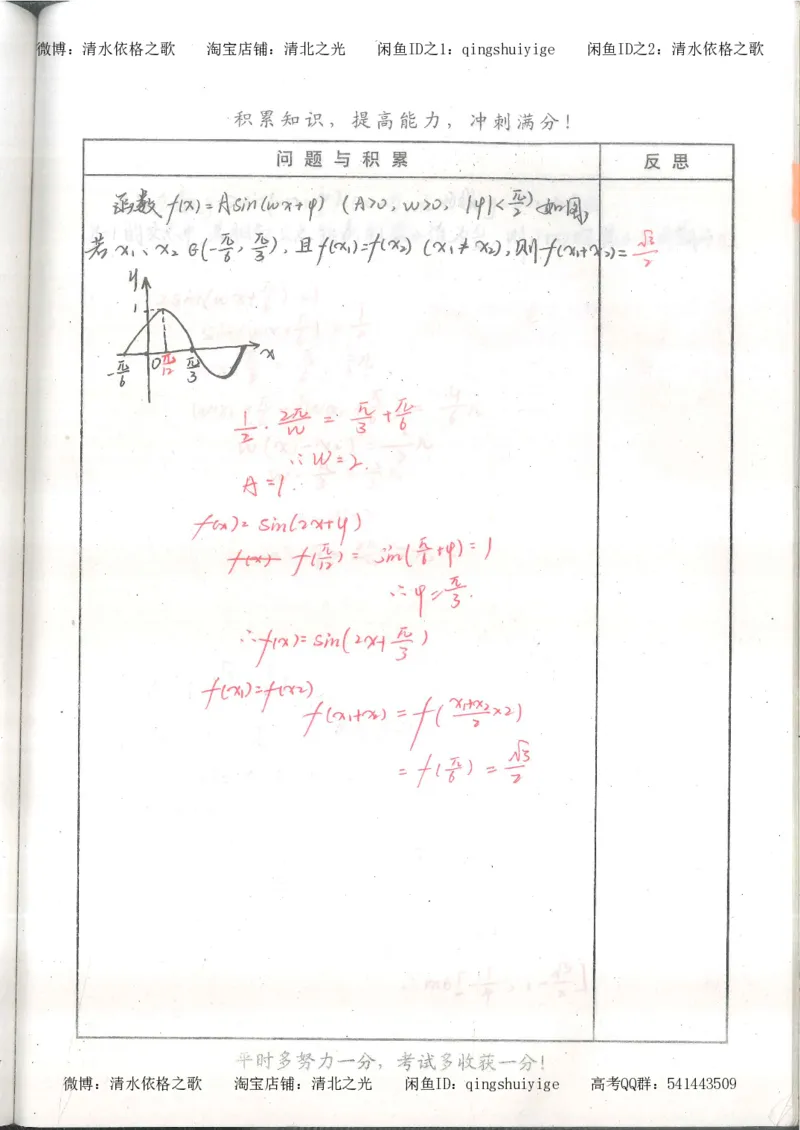 微博：清水依格之歌 淘宝店铺：清北之光 闲鱼ID之1：qingshuiyige 闲鱼ID之2：清水依格之歌
积累知识，提高能力，冲刺满分！
问题与积累 反思
函数 f(x)=Asin(wx+φ) (A>0, w>0, |φ|<π/2) 如图,
若 x₁、x₂∈(-π/6, π/3), 且 f(x₁)=f(x₂) (x₁≠x₂), 则 f(x₁+x₂)=√3/2
y
1
-π/6 O π/12 π/3 x
1/2 · 2π/w = π/3 + π/6
∴ w=2.
A=1.
f(x)= sin(2x+φ)
f(x) f(π/12) = sin(π/6+φ)=1
∴ φ=π/3.
∴ f(x)=sin(2x+π/3)
f(x₁)=f(x₂)
f(x₁+x₂) = f(x₁+x₂/2 ×2)
= f(π/6) = √3/2
平时多努力一分，考试多收获一分！
微博：清水依格之歌 淘宝店铺：清北之光 闲鱼ID：qingshuiyige 高考QQ群：541443509